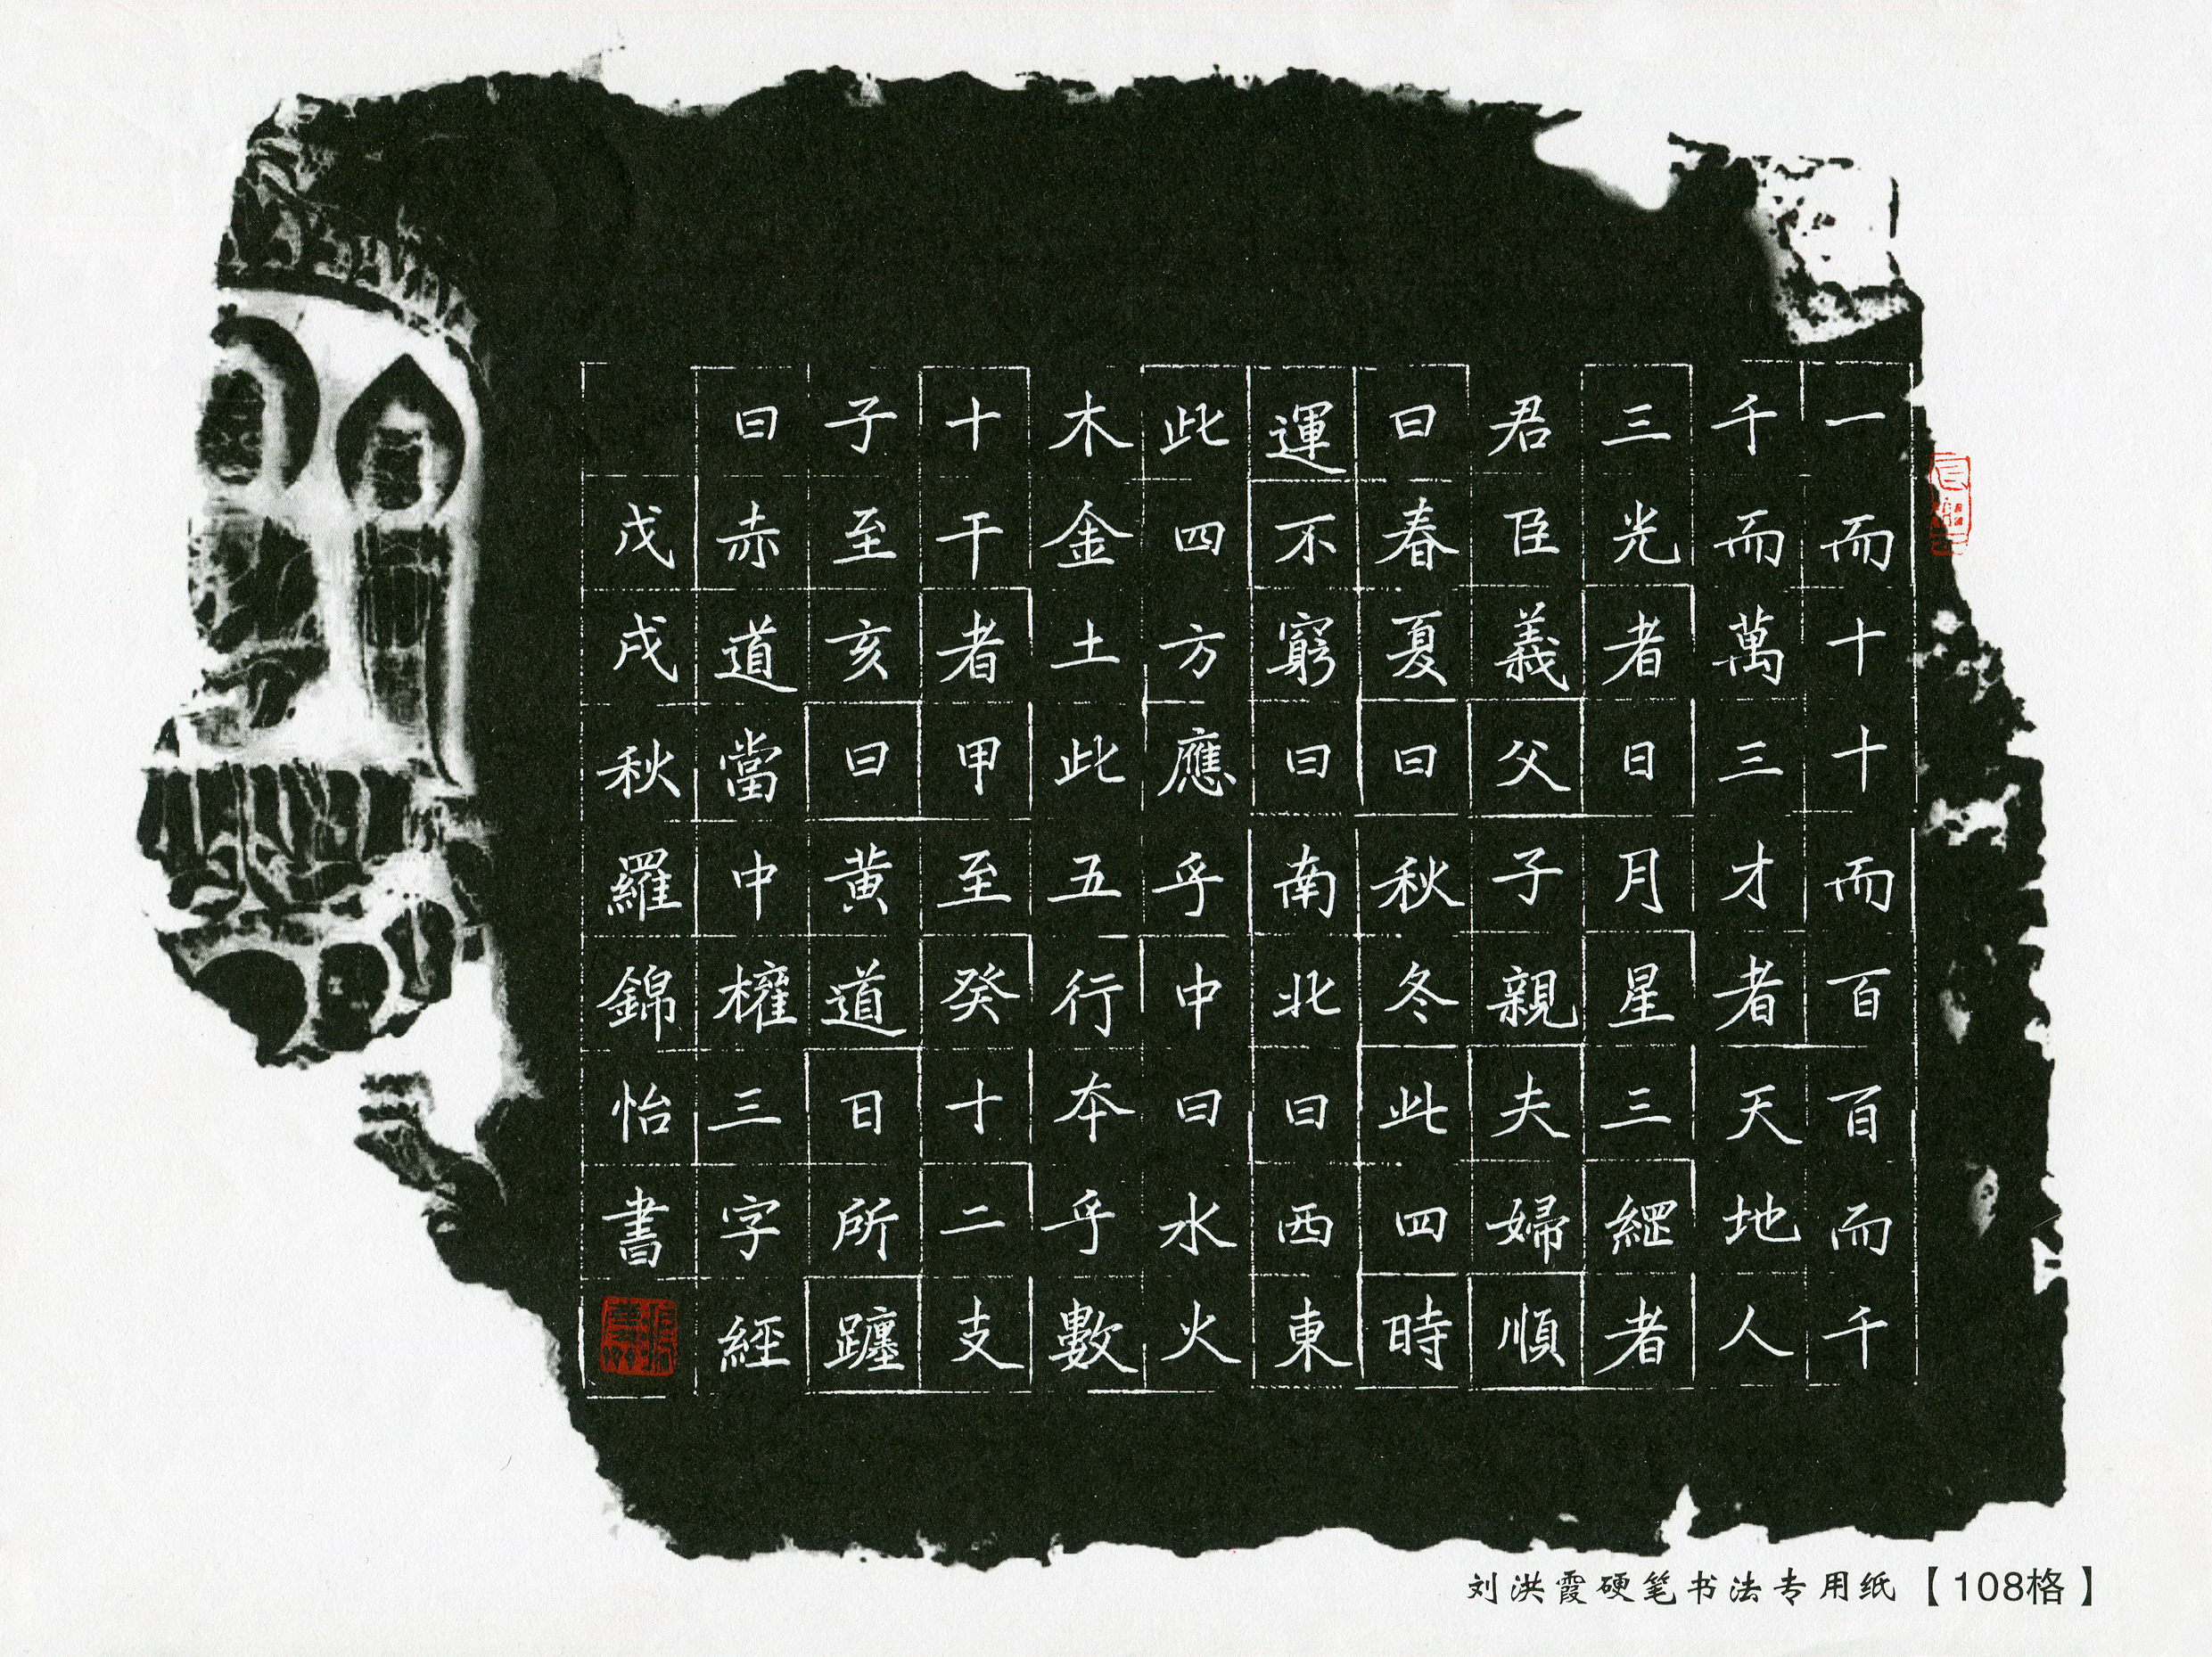 一而十十而百百而千
千而萬三才者天地人
三光者日月星三綱者
君臣義父子親夫婦順
曰春夏曰秋冬此四時
運不窮曰南北曰西東
此四方應乎中曰水火
木金土此五行本乎數
十干者甲至癸十二支
子至亥曰黄道日所躔
曰赤道當中權三字經
戊戌秋羅錦怡書
刘洪霞硬笔书法专用纸【108格】